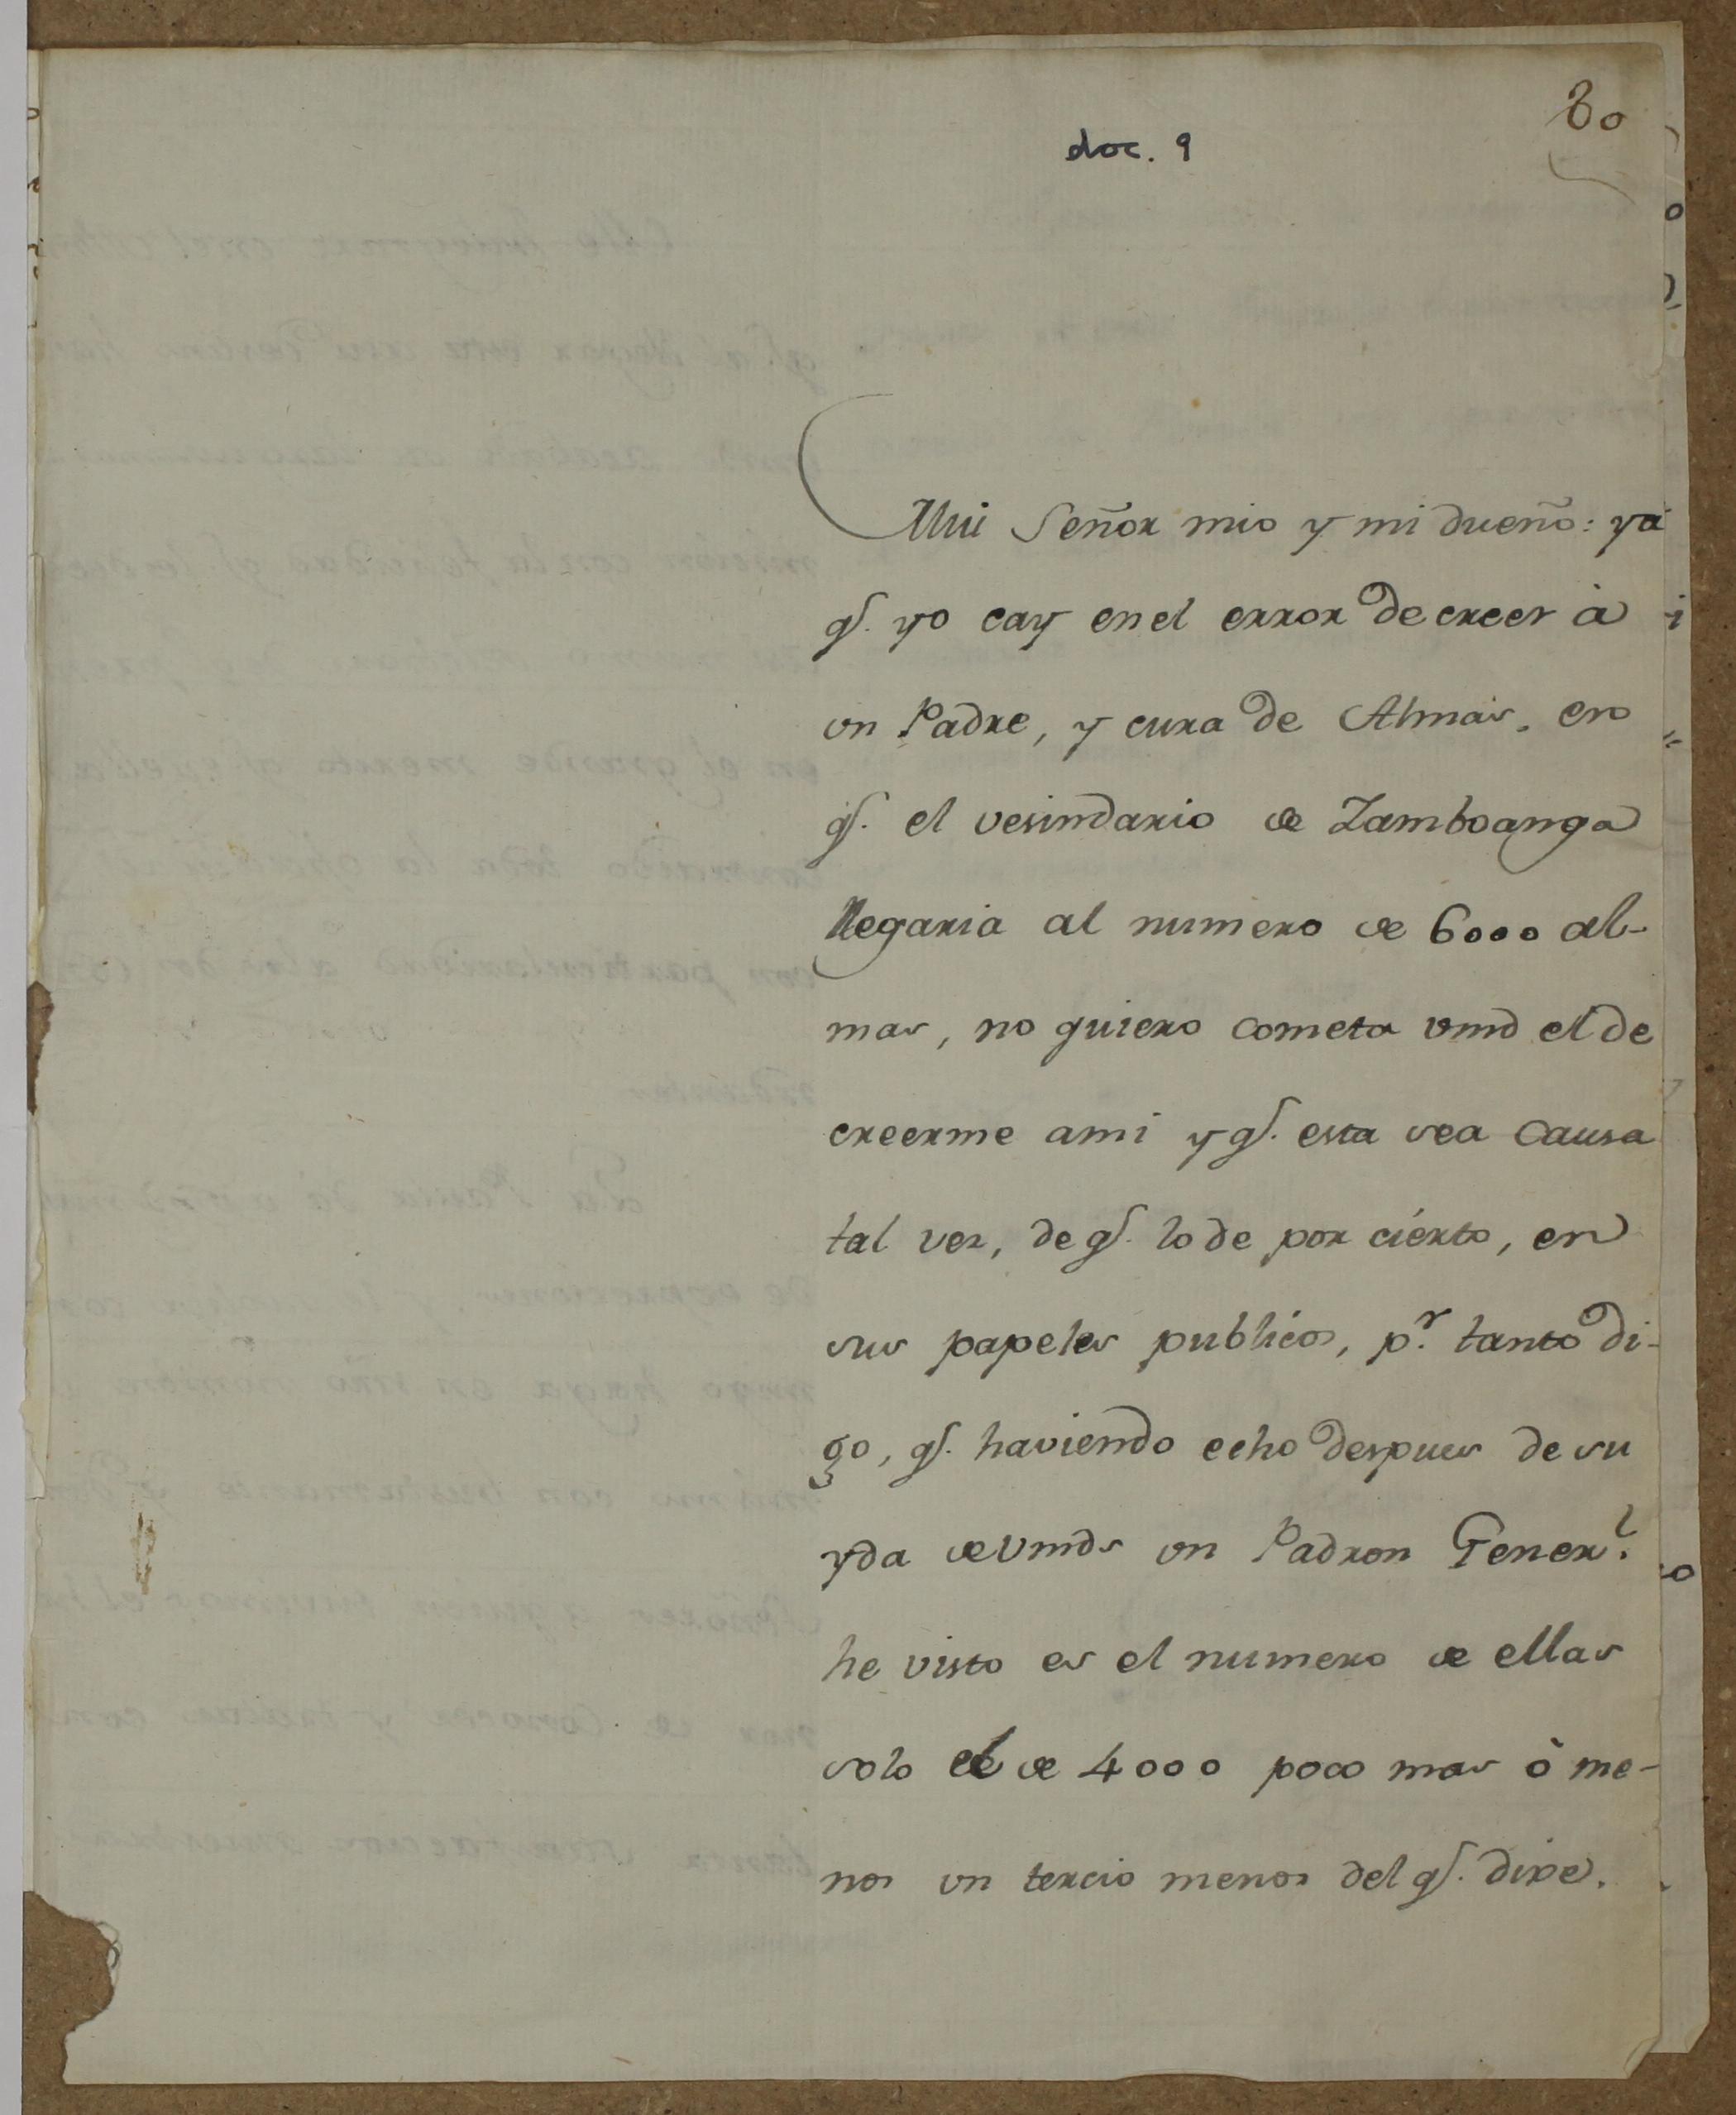 80
doc. 9
Mui Señor mio y mi dueño: ya
q.e yo cay en el error de creer à
un Padre, y cura de Almas, en
q.e el vesindario de Zamboanga
llegaria al numero de 6000 al-
mas, no quiero cometa vmd el de
creerme ami y q.e esta sea causa
tal vez, de q.e lo de por cierto, en
sus papeles publicos, p.r tanto di-
go, q.e haviendo echo despues de su
yda de Vmds un Padron Gener.l
he visto es el numero de ellas
solo el de 4000 poco mas ò me-
nos un tercio menos del q.e dixe.